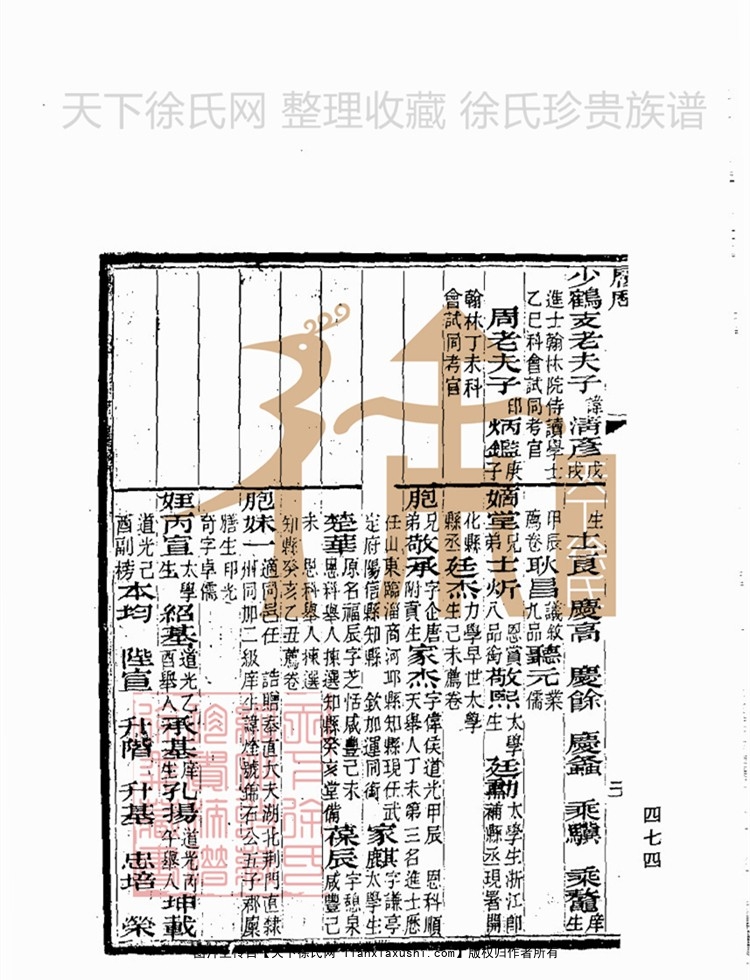 天下徐氏网 整理收藏 徐氏珍贵族谱
履历
少鶴支老夫子 諱清彥戊戌
進士翰林院侍讀學士
乙巳科會試同考官
周老夫子 印炳鑑庚子
翰林丁未科
會試同考官
生 士良 慶高 慶餘 慶鑫 乘驥 乘鰲 庠生
甲辰薦卷 耿昌 議敘九品 聽元 業儒
嫡堂兄弟 士炘 恩賞八品銜 敬熙 太學生 廷勳 太學生浙江即補縣丞現署開
化縣縣丞 廷杰 力學早世太學生己未薦卷
胞兄弟 敬承 字企唐附貢生 家杰 字偉侯道光甲辰 恩科順天舉人丁未第三名進士歷
任山東臨淄商河邱縣知縣現任武定府陽信縣知縣 欽加運同銜 家麒 字謙亭太學生
楚華 原名福辰字芝恬咸豐己未 恩科舉人揀選知縣癸亥堂備 葆辰 字憩泉咸豐己
未 恩科舉人揀選
知縣癸亥乙丑薦卷
胞妹一 適同邑任 誥贈奉直大夫湖北荊門直隸州同加二級庠生諱烇號錦石公五子郡廩
膳生印光
奇字卓儒
姪丙宣 太學生 紹基 道光乙酉舉人 承基 庠生 孔揚 道光丙午舉人 坤載
道光己酉副榜 本均 陞宣 升階 升基 忠培 榮
三
四七四
徐
天下徐氏
图片上传自【天下徐氏网 tianxiaxushi.com】版权归作者所有